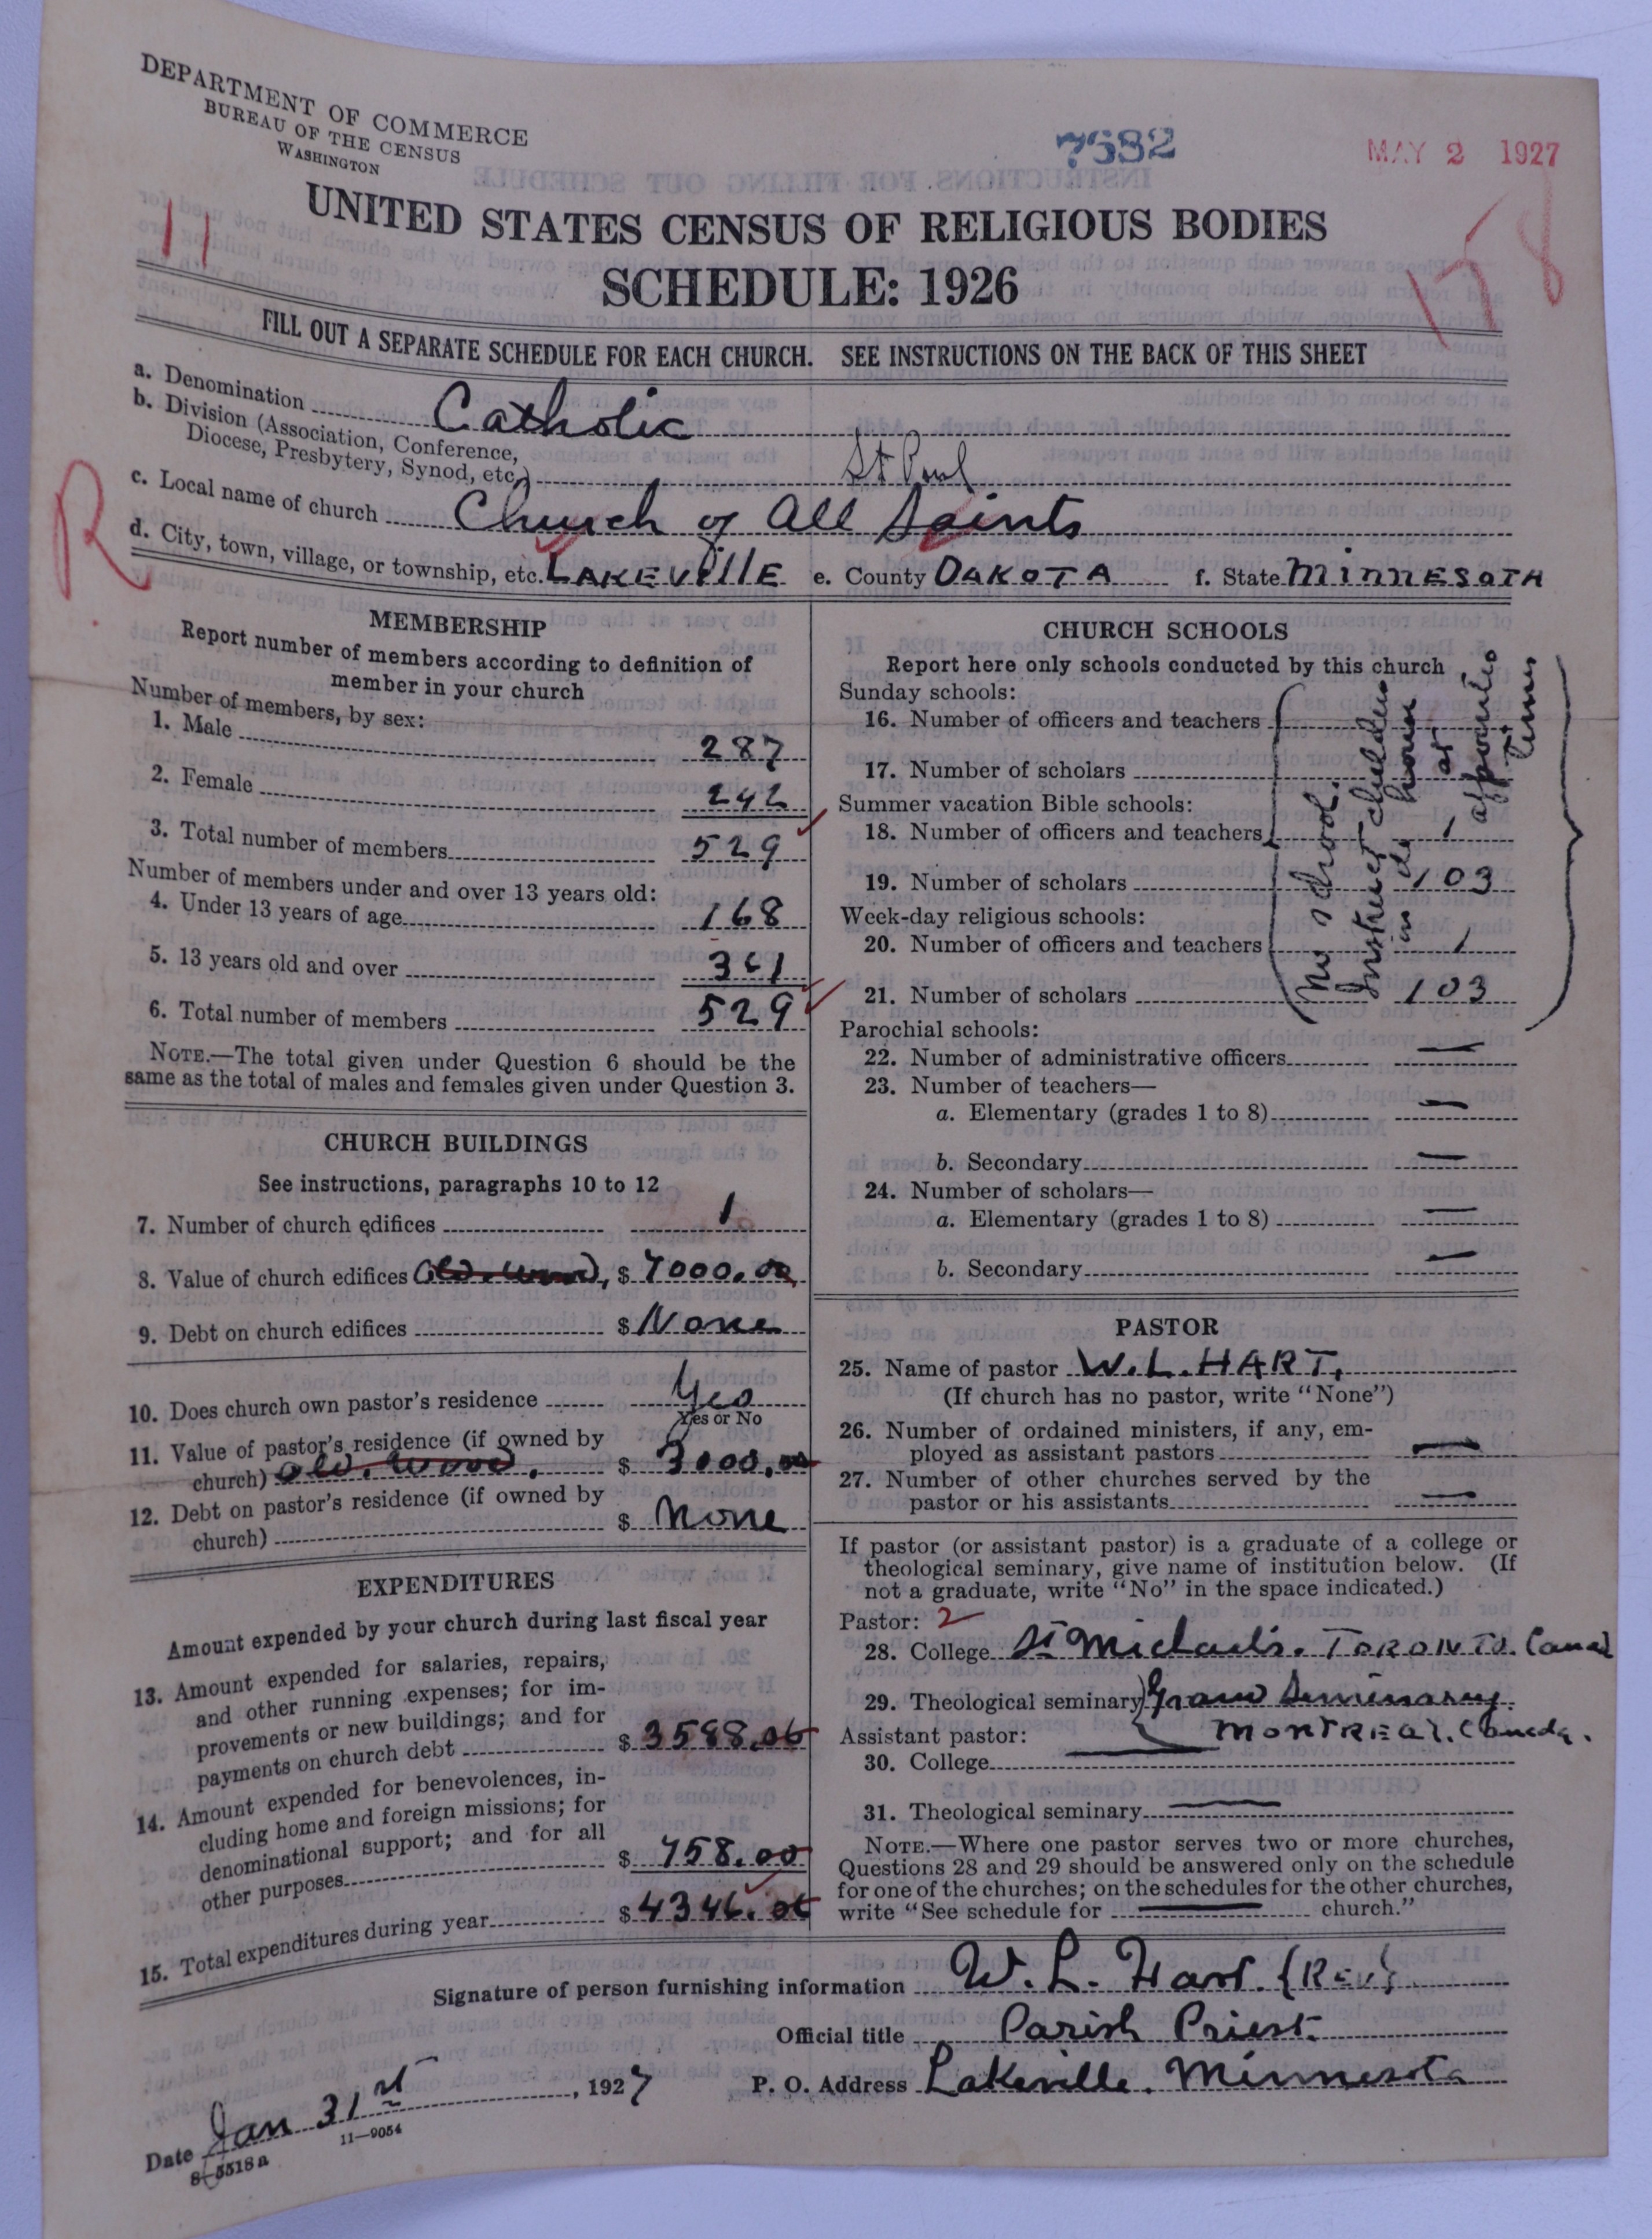 DEPARTMENT OF COMMERCE
BUREAU OF THE CENSUS
WASHINGTON
7632
MAY 2 1927
11
UNITED STATES CENSUS OF RELIGIOUS BODIES
SCHEDULE: 1926
FILL OUT A SEPARATE SCHEDULE FOR EACH CHURCH. SEE INSTRUCTIONS ON THE BACK OF THIS SHEET
a. Denomination Catholic
b. Division (Association, Conference,
Diocese, Presbytery, Synod, etc.) St Paul
R
c. Local name of church Church of All Saints
d. City, town, village, or township, etc. LAKEVIllE e. County DAKOTA f. State MINNESOTA
MEMBERSHIP
Report number of members according to definition of
member in your church
Number of members, by sex:
1. Male 287
2. Female 242
3. Total number of members 529
Number of members under and over 13 years old:
4. Under 13 years of age 168
5. 13 years old and over 361
6. Total number of members 529
NOTE.—The total given under Question 6 should be the
same as the total of males and females given under Question 3.
CHURCH BUILDINGS
See instructions, paragraphs 10 to 12
7. Number of church edifices 1
8. Value of church edifices (old. wood), $ 7000.00
9. Debt on church edifices $ None
10. Does church own pastor's residence Yes
Yes or No
11. Value of pastor's residence (if owned by
church) old. wood. $ 3000.00
12. Debt on pastor's residence (if owned by
church) $ None
EXPENDITURES
Amount expended by your church during last fiscal year
13. Amount expended for salaries, repairs,
and other running expenses; for im-
provements or new buildings; and for
payments on church debt $ 3588.06
14. Amount expended for benevolences, in-
cluding home and foreign missions; for
denominational support; and for all
other purposes $ 758.00
15. Total expenditures during year $ 4346.06
CHURCH SCHOOLS
Report here only schools conducted by this church
Sunday schools:
16. Number of officers and teachers
17. Number of scholars
Summer vacation Bible schools:
18. Number of officers and teachers 1
19. Number of scholars 103
Week-day religious schools:
20. Number of officers and teachers 1
21. Number of scholars 103
No school.
Instruct children
in my house
at
appointed
times
Parochial schools:
22. Number of administrative officers —
23. Number of teachers—
a. Elementary (grades 1 to 8) —
b. Secondary —
24. Number of scholars—
a. Elementary (grades 1 to 8) —
b. Secondary —
PASTOR
25. Name of pastor W. L. HART.
(If church has no pastor, write "None")
26. Number of ordained ministers, if any, em-
ployed as assistant pastors —
27. Number of other churches served by the
pastor or his assistants —
If pastor (or assistant pastor) is a graduate of a college or
theological seminary, give name of institution below. (If
not a graduate, write "No" in the space indicated.)
Pastor: 2
28. College St Michael's. TORONTO. Canad
29. Theological seminary Grand Seminary.
MONTREAL. Canada.
Assistant pastor:
30. College —
31. Theological seminary —
NOTE.—Where one pastor serves two or more churches,
Questions 28 and 29 should be answered only on the schedule
for one of the churches; on the schedules for the other churches,
write "See schedule for — church."
Signature of person furnishing information W. L. Hart. (Rev)
Official title Parish Priest.
Date Jan 31st, 1927 P. O. Address Lakeville. Minnesota
11—9054
8-5518a